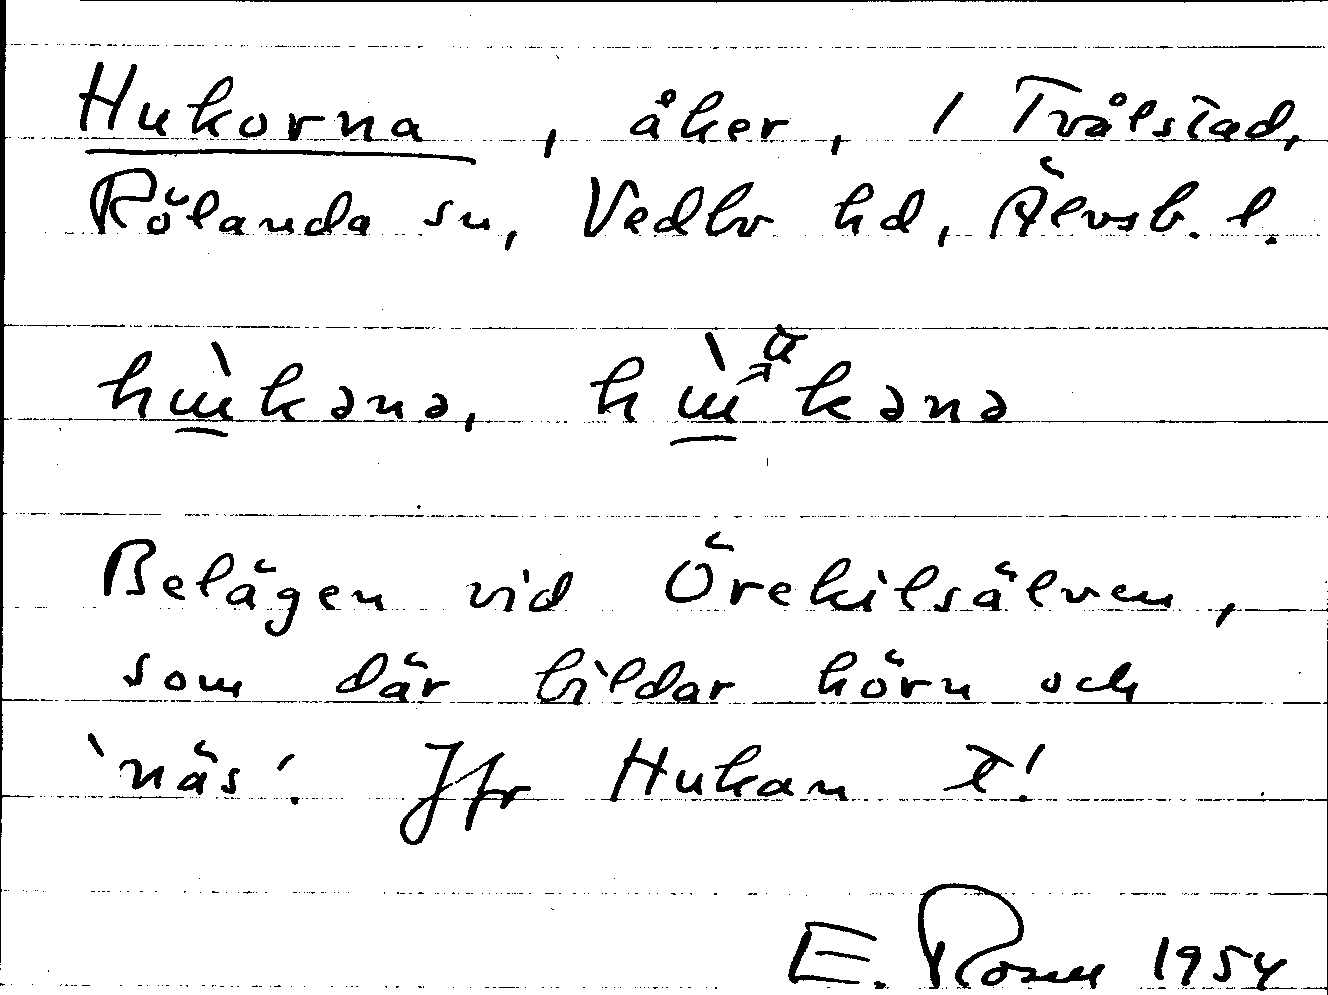 Hukorna, åker, 1 Tvålstad,
Rölanda sn, Vedbo hd, Älvsb. l.
hɯ̀kənə, hɯ̀ᵅkənə
Belägen vid Örekilsälven,
som där bildar hörn och
`näs´. Jfr Hukan t!
E. Rosen 1954